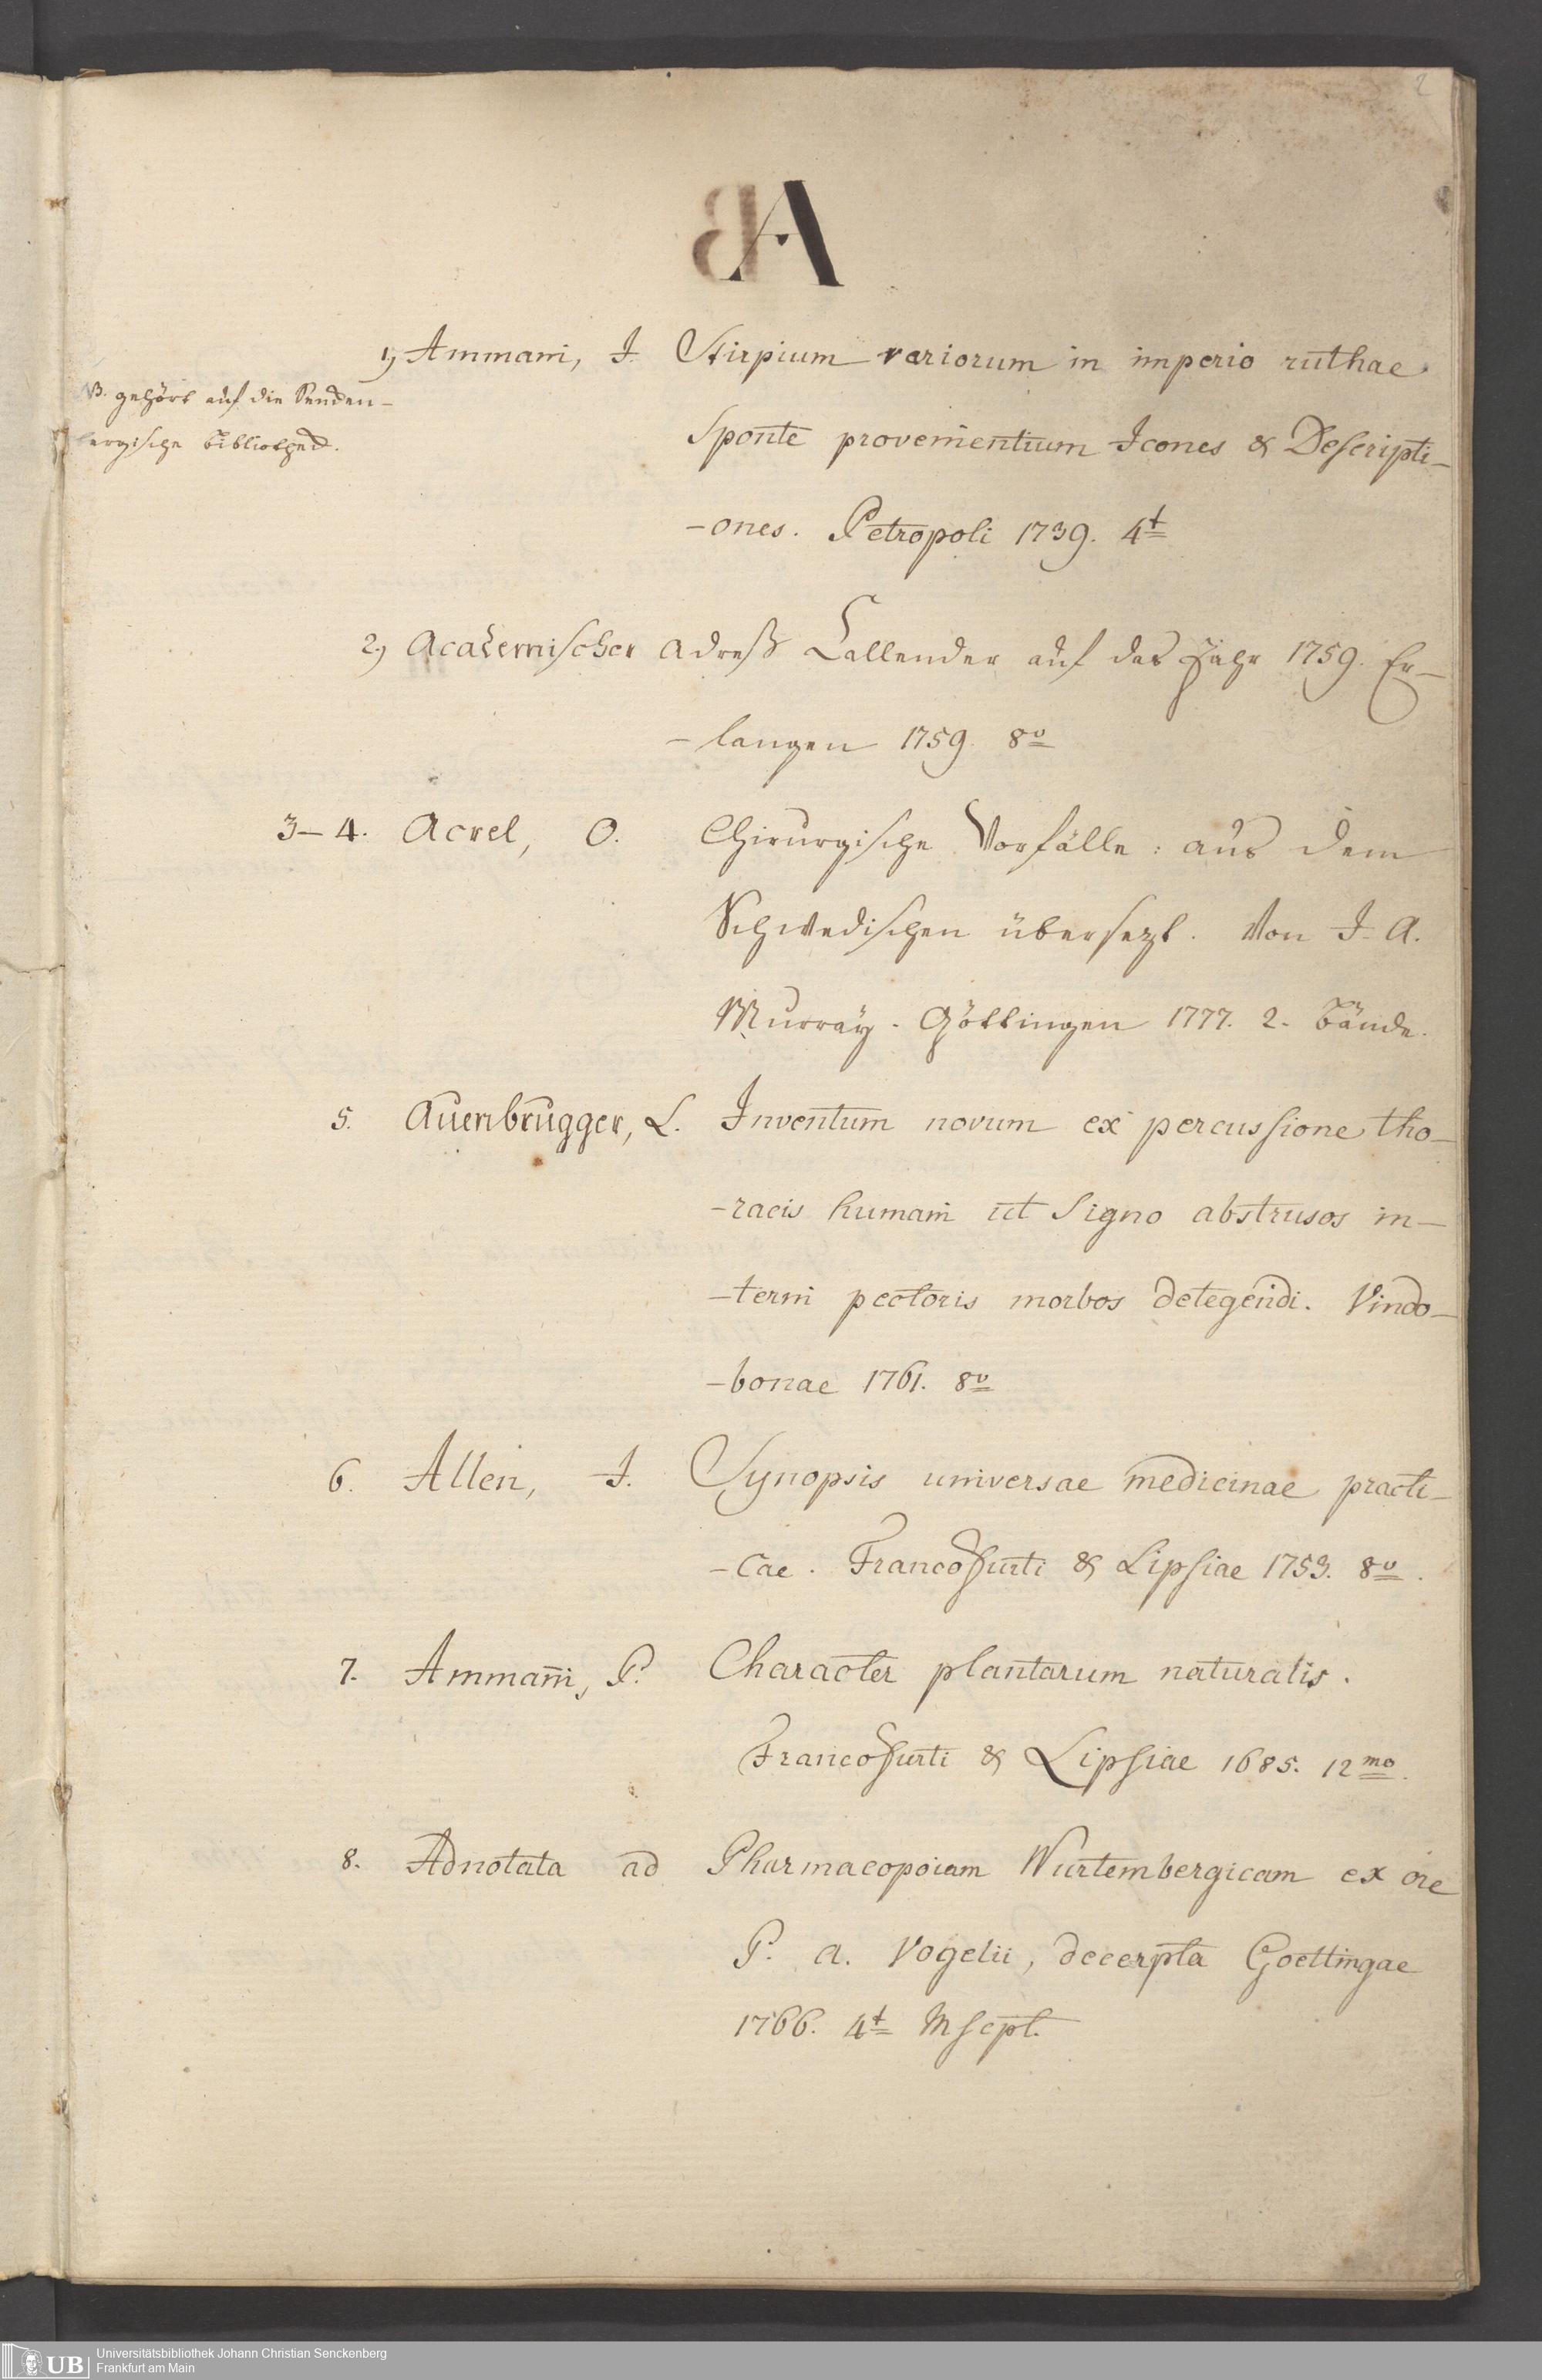 2
A
1.) Ammani, I. Stirpium rariorum in imperio ruthae
NB. gehört auf die Senken-
bergische Bibliotheck.
sponte provenientium Icones & Descripti-
-ones. Petropoli 1739. 4t
2.) Academischer Adreß Callender auf das Jahr 1759. Er-
-langen 1759. 8o
3-4. Acrel, O. Chirurgische Vorfälle: aus dem
Schwedischen übersezt. Von I. A.
Murray. Göttingen 1777. 2. Bände.
5. Auenbrugger, L. Inventum novum ex percussione tho-
-racis humani ut signo abstrusos in-
-terni pectoris morbos detegendi. Vindo-
-bonae 1761. 8o
6. Allen, I. Synopsis universae medicinae practi-
-cae. Francofurti & Lipsiae 1753. 8o.
7. Ammani, P. Character plantarum naturalis.
Francofurti & Lipsiae 1685. 12mo.
8. Adnotata ad Pharmacopoiam Wurtembergicam ex ore
P. A. Vogelii, decerpta Goettingae
1766. 4t Mscpt.
UB Universitätsbibliothek Johann Christian Senckenberg
Frankfurt am Main